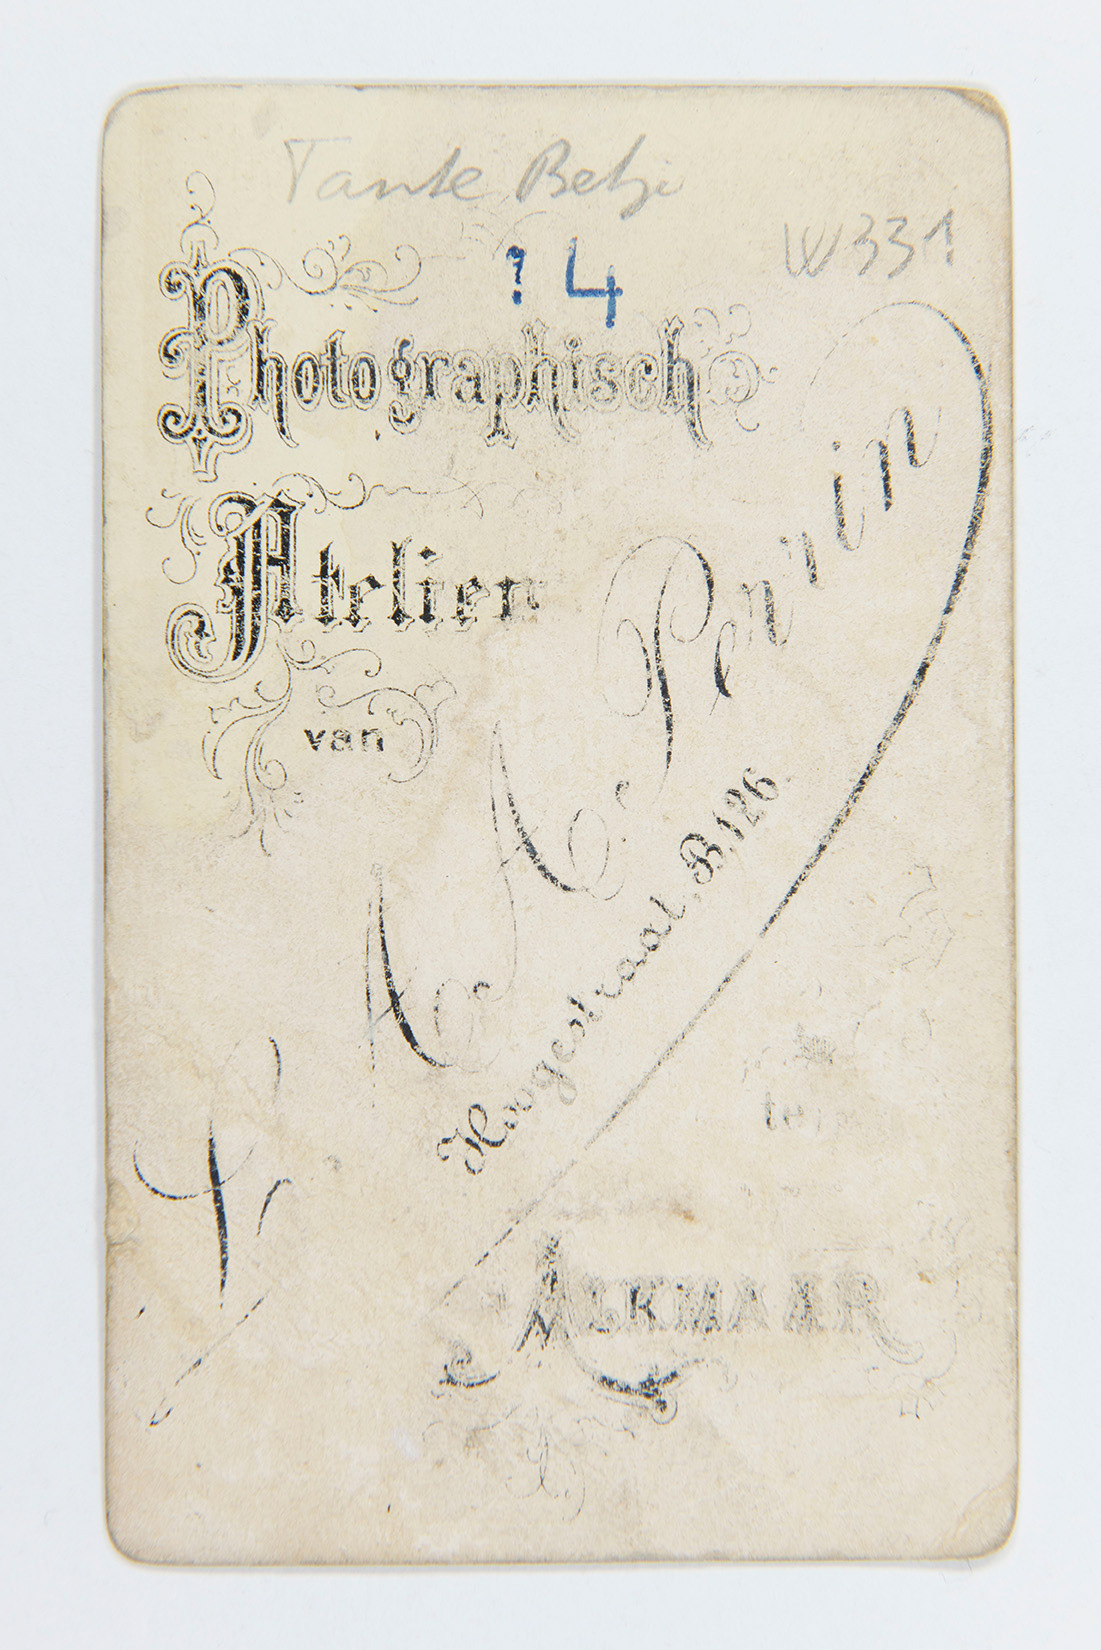 Tante Betje
W331
? 4
Photographisch
Atelier
van
F. A. A. Perrin
Hoogestraat, B,126.
te
ALKMAAR